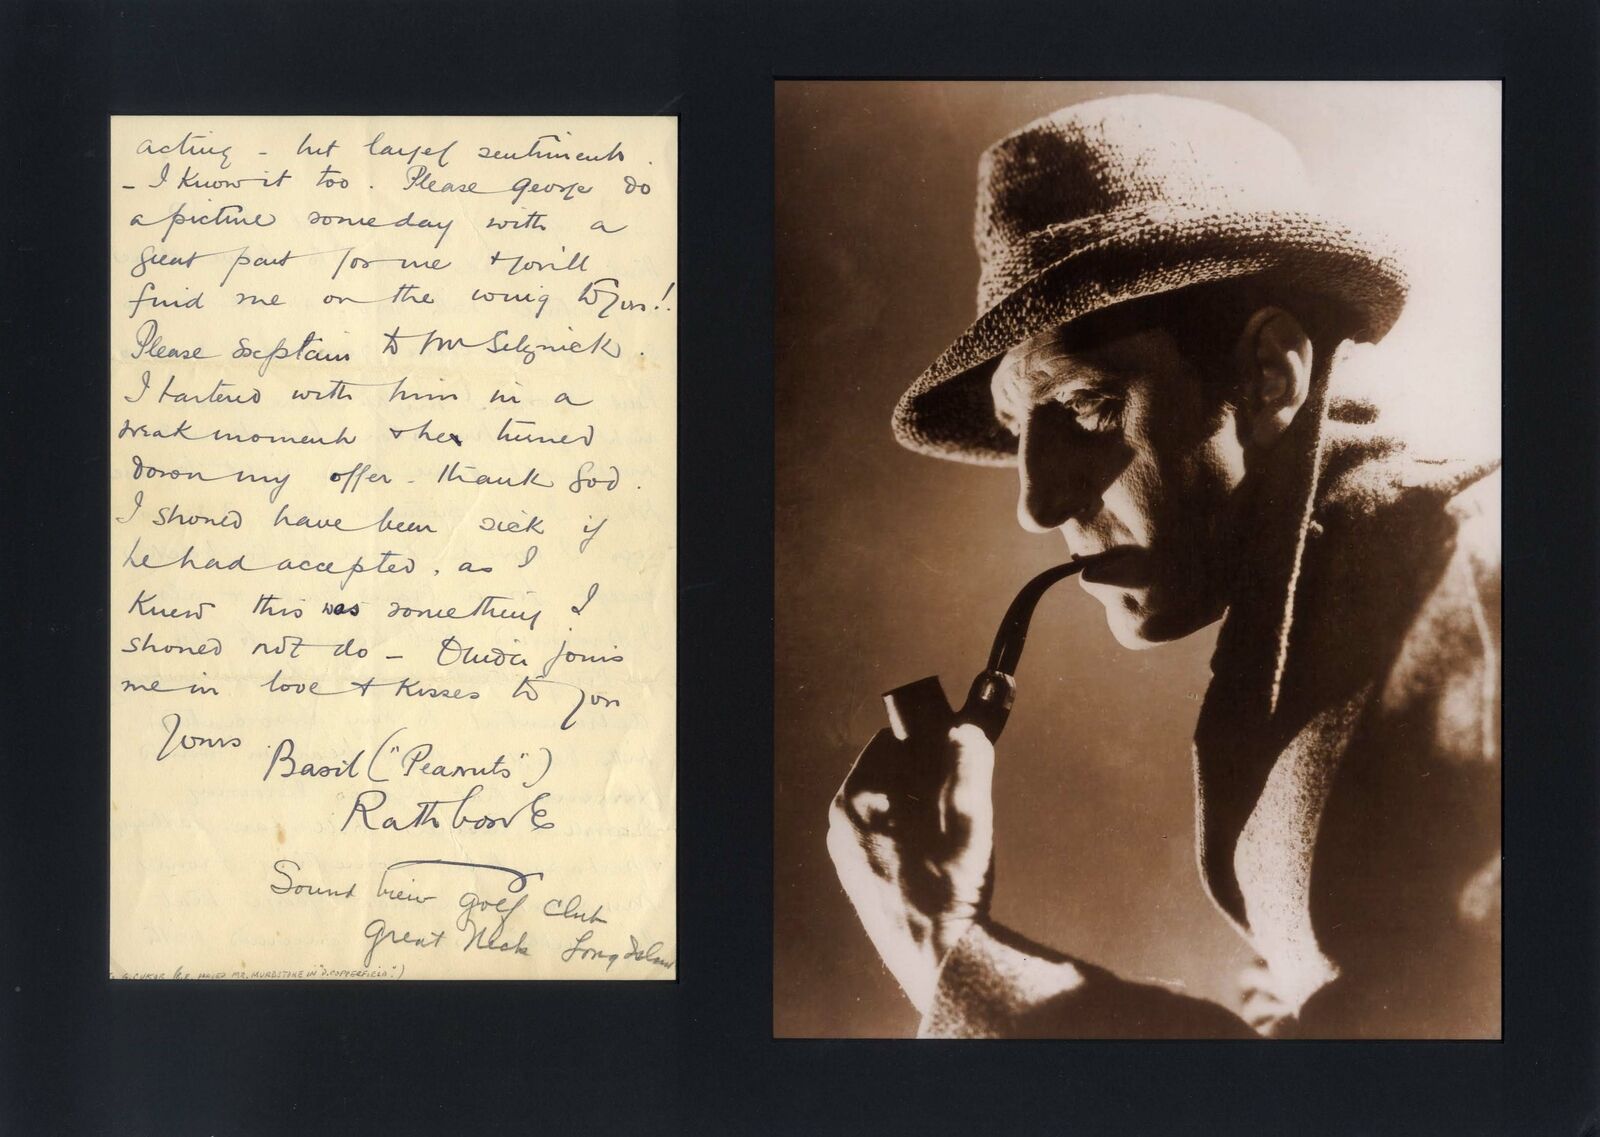 acting - but largest sentiments.
- I Know it too. Please George do
a picture someday with a
great part for me + you'll
find me on the wing to you!!
Please explain to Mr Selznick.
I tartered with him in a
weak moment & he turned
down my offer - thank God.
I shoned have been sick if
he had accepted, as I
Knew this was something I
shoned not do - Ouida joins
me in love + Kisses to you
Yours
Basil ("Peanuts")
Rathbone
Sound View Golf Club
Great Neck Long Island
G. CUKOR PLAYED MR. MURDSTONE IN "D. COPPERFIELD".)